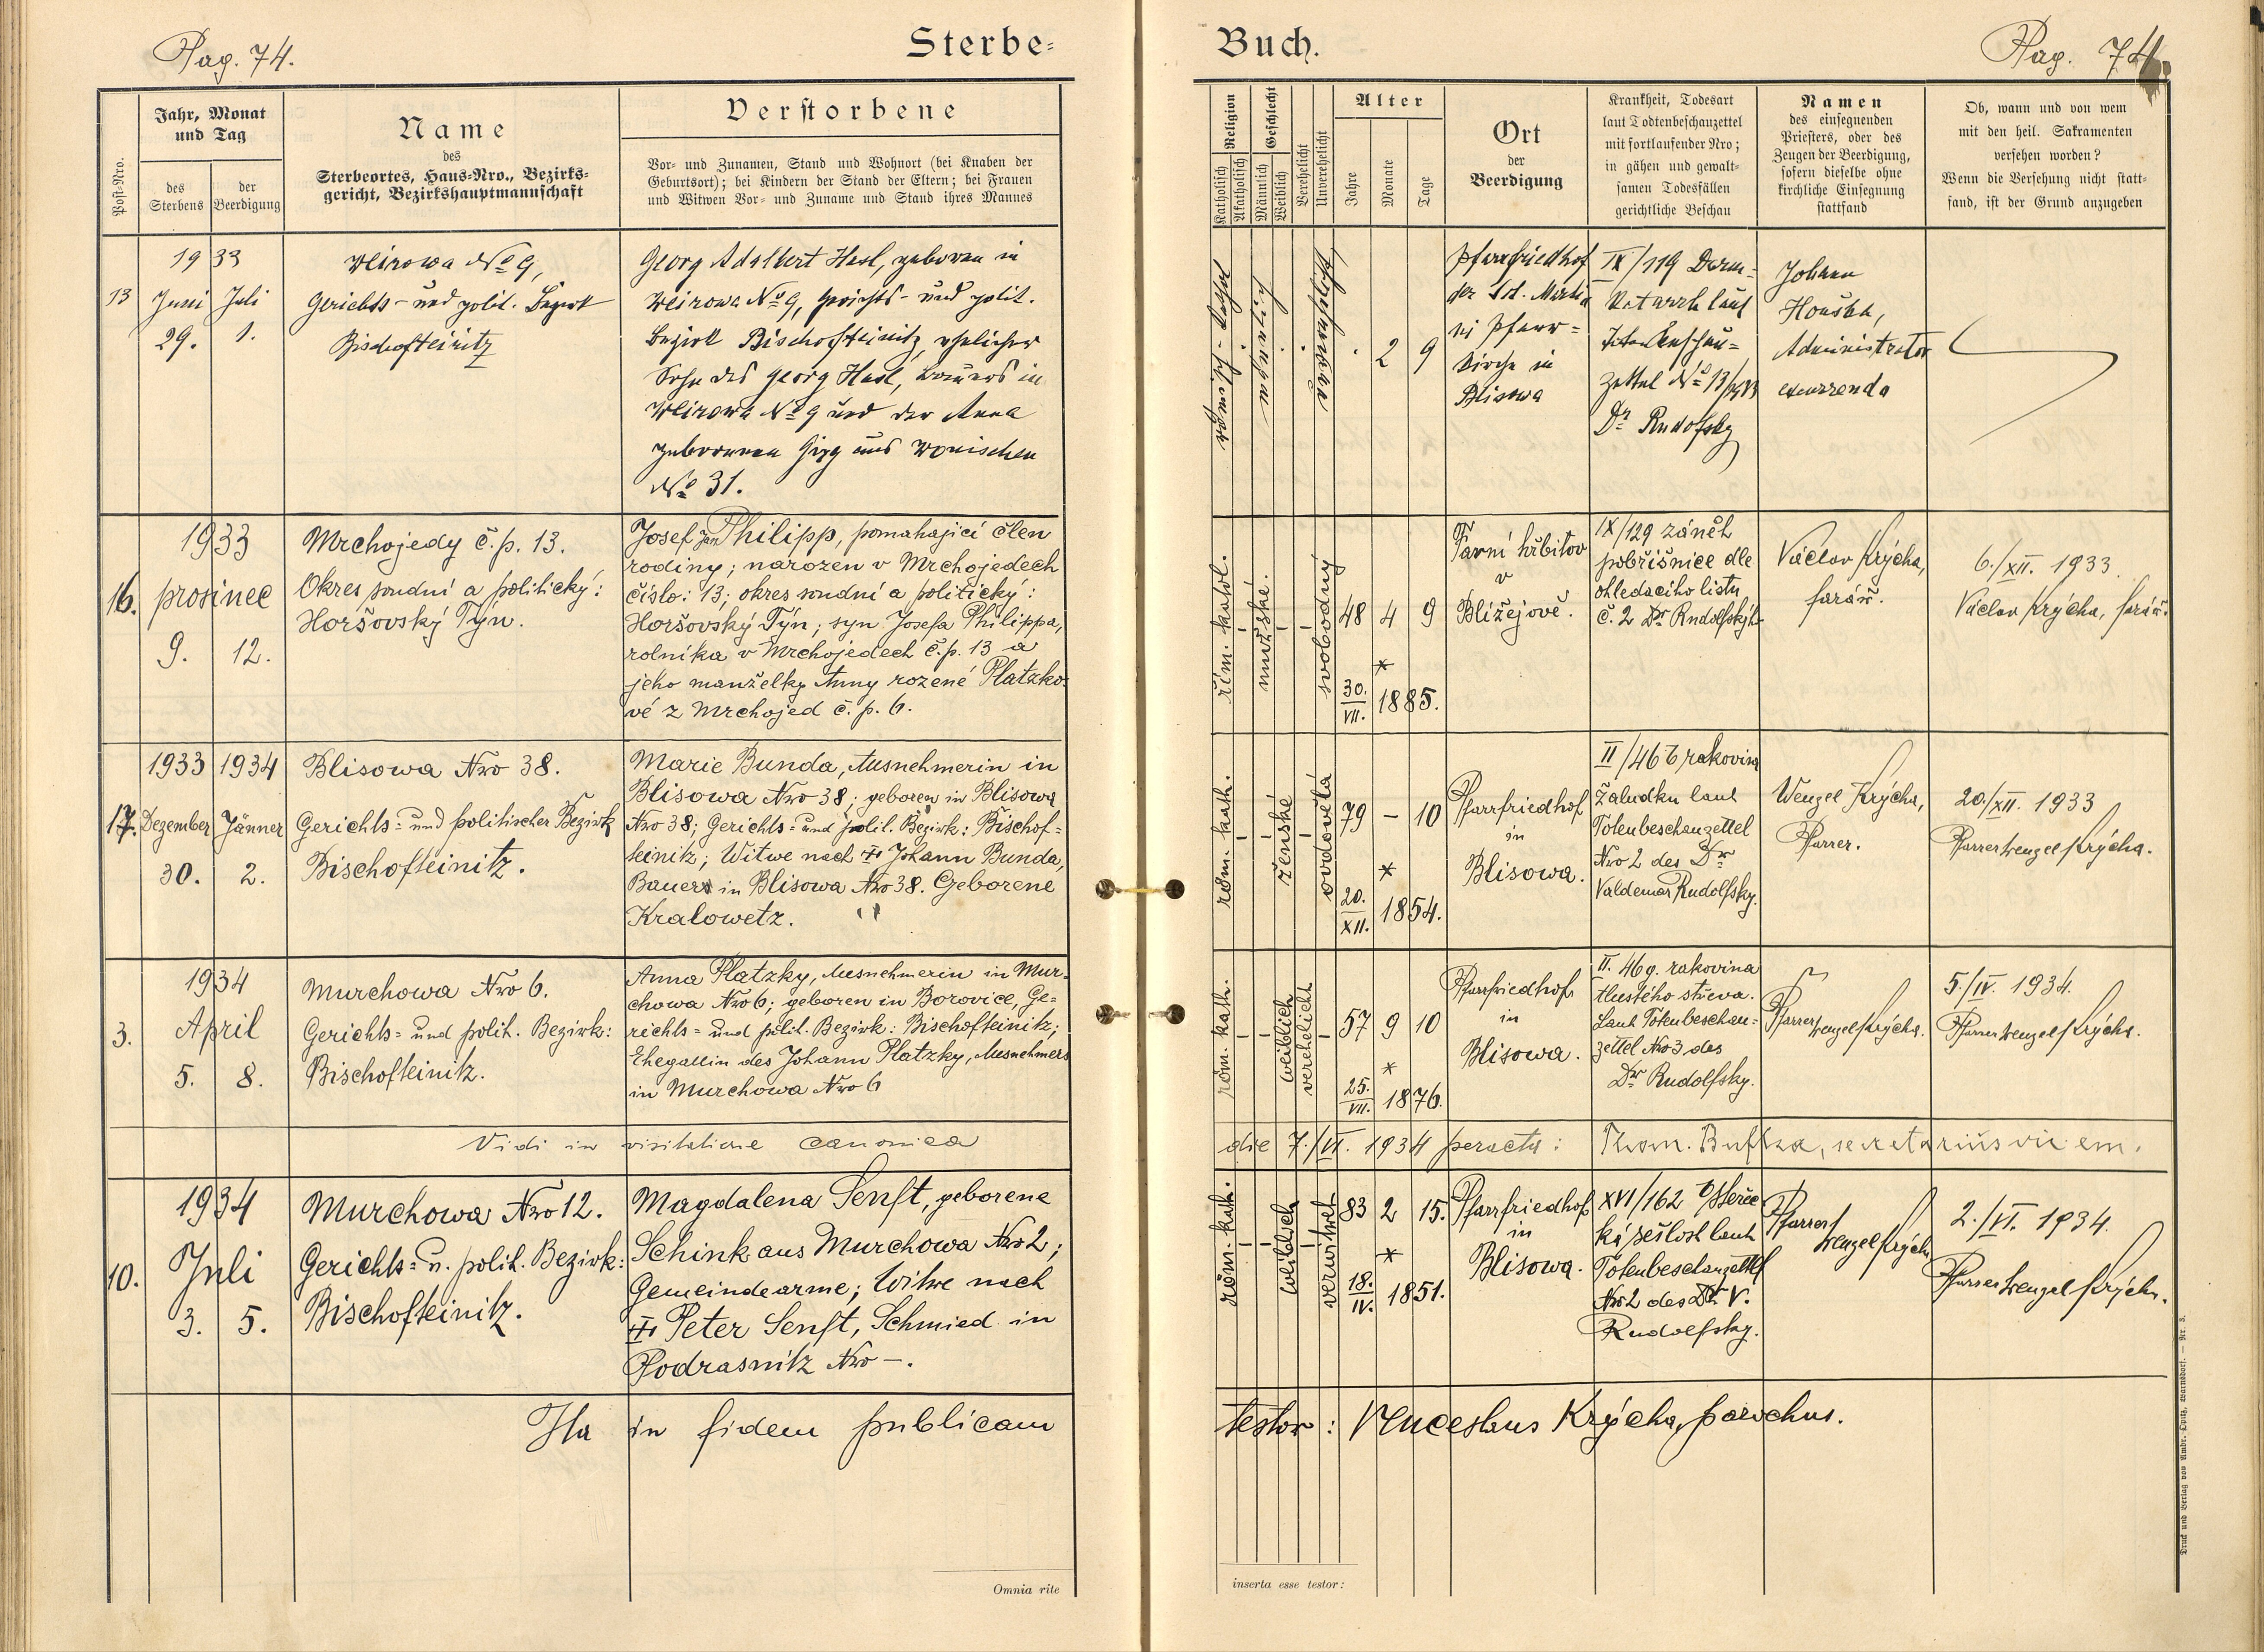 Pag. 74.
Sterbe-
Post-Nro.
Jahr, Monat
und Tag
des
Sterbens
der
Beerdigung
Name
des
Sterbeortes, Haus-Nro., Bezirks-
gericht, Bezirkshauptmannschaft
Verstorbene
Vor- und Zunamen, Stand und Wohnort (bei Knaben der
Geburtsort); bei Kindern der Stand der Eltern; bei Frauen
und Witwen Vor- und Zuname und Stand ihres Mannes
13
1933
Juni Juli
29. 1.
Weirowa No 9,
Gerichts- und polit. Bezirk
Bischofteinitz
Georg Adalbert Hasl, geboren in
Weirowa No 9, Gerichts- und polit.
Bezirk Bischofteinitz, ehelicher
Sohn des Georg Hasl, Bauers in
Weirowa No 9 und der Anna
geborenen Girg aus Wonischen
No 31.
16.
1933
prosinec
9. 12.
Mrchojedy č.p. 13.
Okres soudní a politický:
Horšovský Týn.
Josef Jan Philipp, pomahající člen
rodiny; narozen v Mrchojedech
číslo: 13; okres soudní a politický:
Horšovský Týn; syn Josefa Philippa,
rolníka v Mrchojedech č.p. 13 a
jeho manželky Anny rozené Platzko-
vé z Mrchojed č. p. 6.
17.
1933 1934
Dezember Jänner
30. 2.
Blisowa Nro 38.
Gerichts- und politischer Bezirk
Bischofteinitz.
Marie Bunda, Ausnehmerin in
Blisowa Nro 38; geboren in Blisowa
Nro 38; Gerichts- und polit. Bezirk: Bischof-
teinitz; Witwe nach † Johann Bunda,
Bauers in Blisowa Nro 38. Geborene
Kralowetz.
3.
1934
April
5. 8.
Murchowa Nro 6.
Gerichts- und polit. Bezirk:
Bischofteinitz.
Anna Platzky, Ausnehmerin in Mur-
chowa Nro 6; geboren in Borovice, Ge-
richts- und polit. Bezirk: Bischofteinitz;
Ehegattin des Johann Platzky, Ausnehmers
in Murchowa Nro 6
Vidi in visitatione canonica
10.
1934
Juli
3. 5.
Murchowa Nro 12.
Gerichts- u. polit. Bezirk:
Bischofteinitz.
Magdalena Senft, geborene
Schink aus Murchowa Nro 2;
Gemeindearme; Witwe nach
† Peter Senft, Schmied in
Podrasnitz Nro -.
Ita in fidem publicam
Omnia rite
Buch.
Pag. 74.
Religion
Katholisch
Akatholisch
Geschlecht
Männlich
Weiblich
Verehelicht
Unverehelicht
Alter
Jahre
Monate
Tage
Ort
der
Beerdigung
Krankheit, Todesart
laut Todtenbeschauzettel
mit fortlaufender Nro;
in gähen und gewalt-
samen Todesfällen
gerichtliche Beschau
Namen
des einsegnenden
Priesters, oder des
Zeugen der Beerdigung,
sofern dieselbe ohne
kirchliche Einsegnung
stattfand
Ob, wann und von wem
mit den heil. Sakramenten
versehen worden?
Wenn die Versehung nicht statt-
fand, ist der Grund anzugeben
römisch-kathol
unverehelicht
2 9
Pfarrfriedhof
der St. Martin
Pfarr-
kirche in
Blisowa
IX/119 Darm-
katarrh laut
Totenbeschau-
zettel No 13/1933
Dr Rudolfsky
Johann
Houška,
Administrator
excurrendo
řím. katol.
mužské.
svobodný
48 4 9
*
30./VII. 1885.
Farní hřbitov
v
Blížejově.
IX/129 zánět
pobřišnice dle
ohledacího listu
č. 2 Dr Rudolfský
Václav Krýcha,
farář.
6./XII. 1933.
Václav Krýcha, farář.
röm. kath.
ženské
ovdovělá
79 - 10
*
20./XII. 1854.
Pfarrfriedhof
in
Blisowa.
II/46 b rakovina
žaludku laut
Totenbeschauzettel
Nro 2 des Dr
Valdemar Rudolfsky.
Wenzel Krýcha,
Pfarrer.
20./XII. 1933
Pfarrer Wenzel Krýcha.
röm. kath.
weiblich
verehelicht
57 9 10
*
25./VII. 1876.
Pfarrfriedhof
in
Blisowa.
II. 46 g. rakovina
tlustého střeva.
Laut Totenbeschau-
zettel Nro 3 des
Dr Rudolfsky.
Pfarrer Wenzel Krýcha.
5./IV. 1934.
Pfarrer Wenzel Krýcha.
die 7./VI. 1934 peracta: Thom. secretarius vic em.
röm. kath.
weiblich
verwitwet
83 2 15.
*
18./IV. 1851.
Pfarrfriedhof
in
Blisowa.
XVI/162 b stařec-
ká sešlost laut
Totenbeschauzettel
Nro 2 des Dr V.
Rudolfsky.
Pfarrer
Wenzel Krýcha
2./VI. 1934.
Pfarrer Wenzel Krýcha.
testor: Venceslaus Krýcha, parochus.
inserta esse testor:
Druck und Verlag von Ambr. Opitz, Warnsdorf. — Nr. 3.